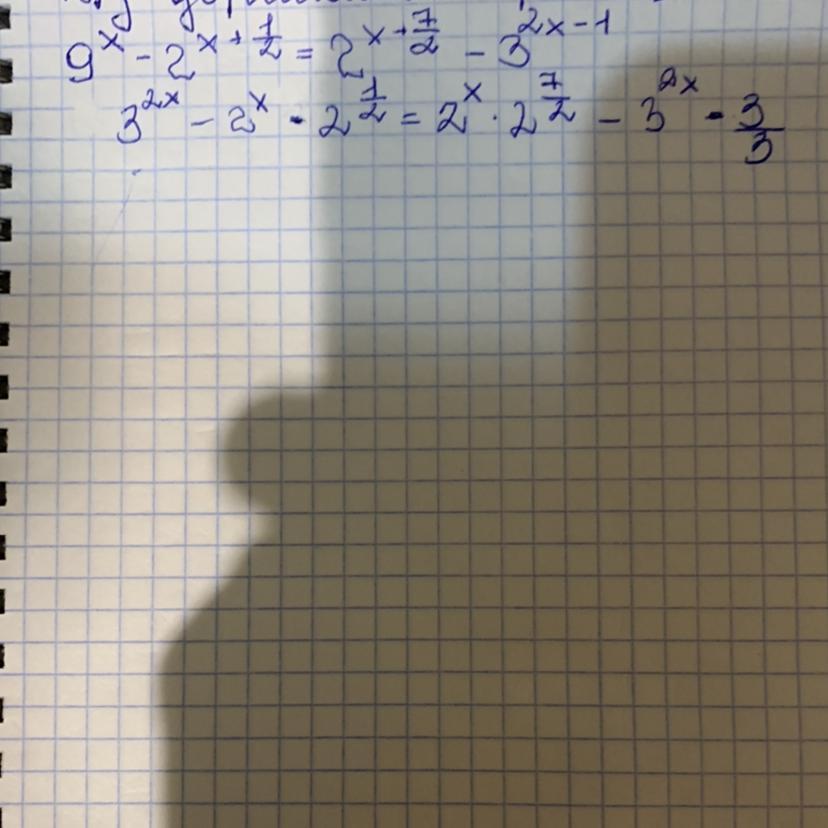 9^x - 2^{x+\frac{1}{2}} = 2^{x+\frac{7}{2}} - 3^{2x-1}
3^{2x} - 2^x · 2^{\frac{1}{2}} = 2^x · 2^{\frac{7}{2}} - 3^{2x} · \frac{3}{3}